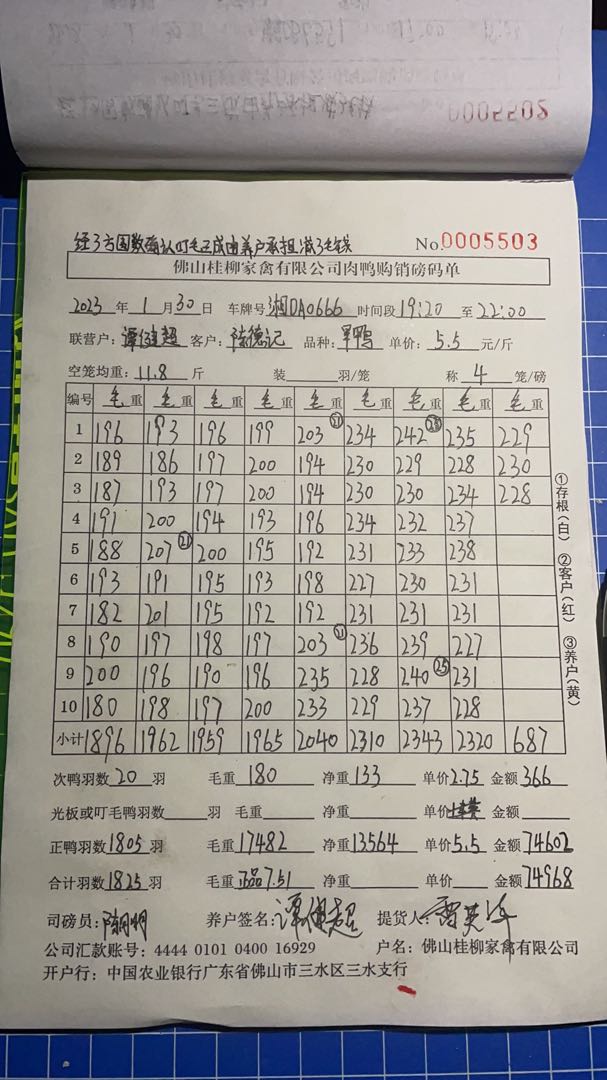 0005502
经3方围数确认叮毛正成由养户承担减3毛钱
No.0005503
佛山桂柳家禽有限公司肉鸭购销磅码单
2023 年 1 月 30 日 车牌号 湘DA0666 时间段 19:20 至 22:00
联营户: 谭健超 客户: 陆德记 品种: 旱鸭 单价: 5.5 元/斤
空笼均重: 11.8 斤 装 羽/笼 称 4 笼/磅
编号 毛重 毛重 毛重 毛重 毛重 毛重 毛重 毛重 毛重
1 196 193 196 199 203 234 242 235 229
2 189 186 197 200 194 230 229 228 230
3 187 193 197 200 194 230 230 234 228
4 191 200 194 193 196 234 232 237
5 188 207 21 200 195 192 231 233 238
6 193 191 195 193 198 227 230 231
7 182 201 195 192 192 231 231 231
8 190 197 198 197 203 236 239 227
9 200 196 190 196 235 228 240 25 231
10 180 198 197 200 233 229 237 228
小计 1896 1962 1959 1965 2040 2310 2343 2320 687
①存根(白) ②客户(红) ③养户(黄)
次鸭羽数 20 羽 毛重 180 净重 133 单价 2.75 金额 366
光板或叮毛鸭羽数 羽 毛重 净重 单价 金额
正鸭羽数 1805 羽 毛重 17482 净重 13564 单价 5.5 金额 74602
合计羽数 1825 羽 毛重 正品7.51 净重 单价 金额 74968
司磅员: 养户签名: 谭健超 提货人:
公司汇款账号: 4444 0101 0400 16929 户名: 佛山桂柳家禽有限公司
开户行: 中国农业银行广东省佛山市三水区三水支行